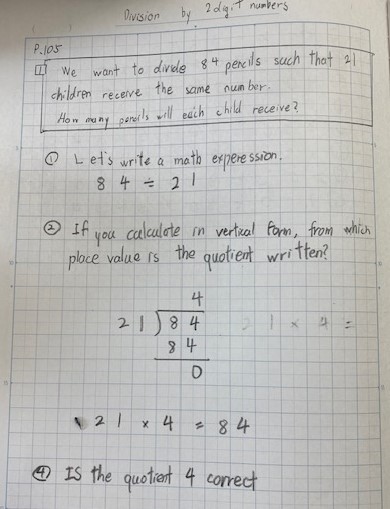 Division by 2 digit numbers
P.105
1 We want to divide 84 pencils such that 21
children receive the same number.
How many pencils will each child receive?
① Let's write a math experession.
84 ÷ 21
② If you calculate in vertical form, from which
place value is the quotient written?
4
21)84 21 × 4 =
84
0
21 × 4 = 84
④ IS the quotient 4 correct